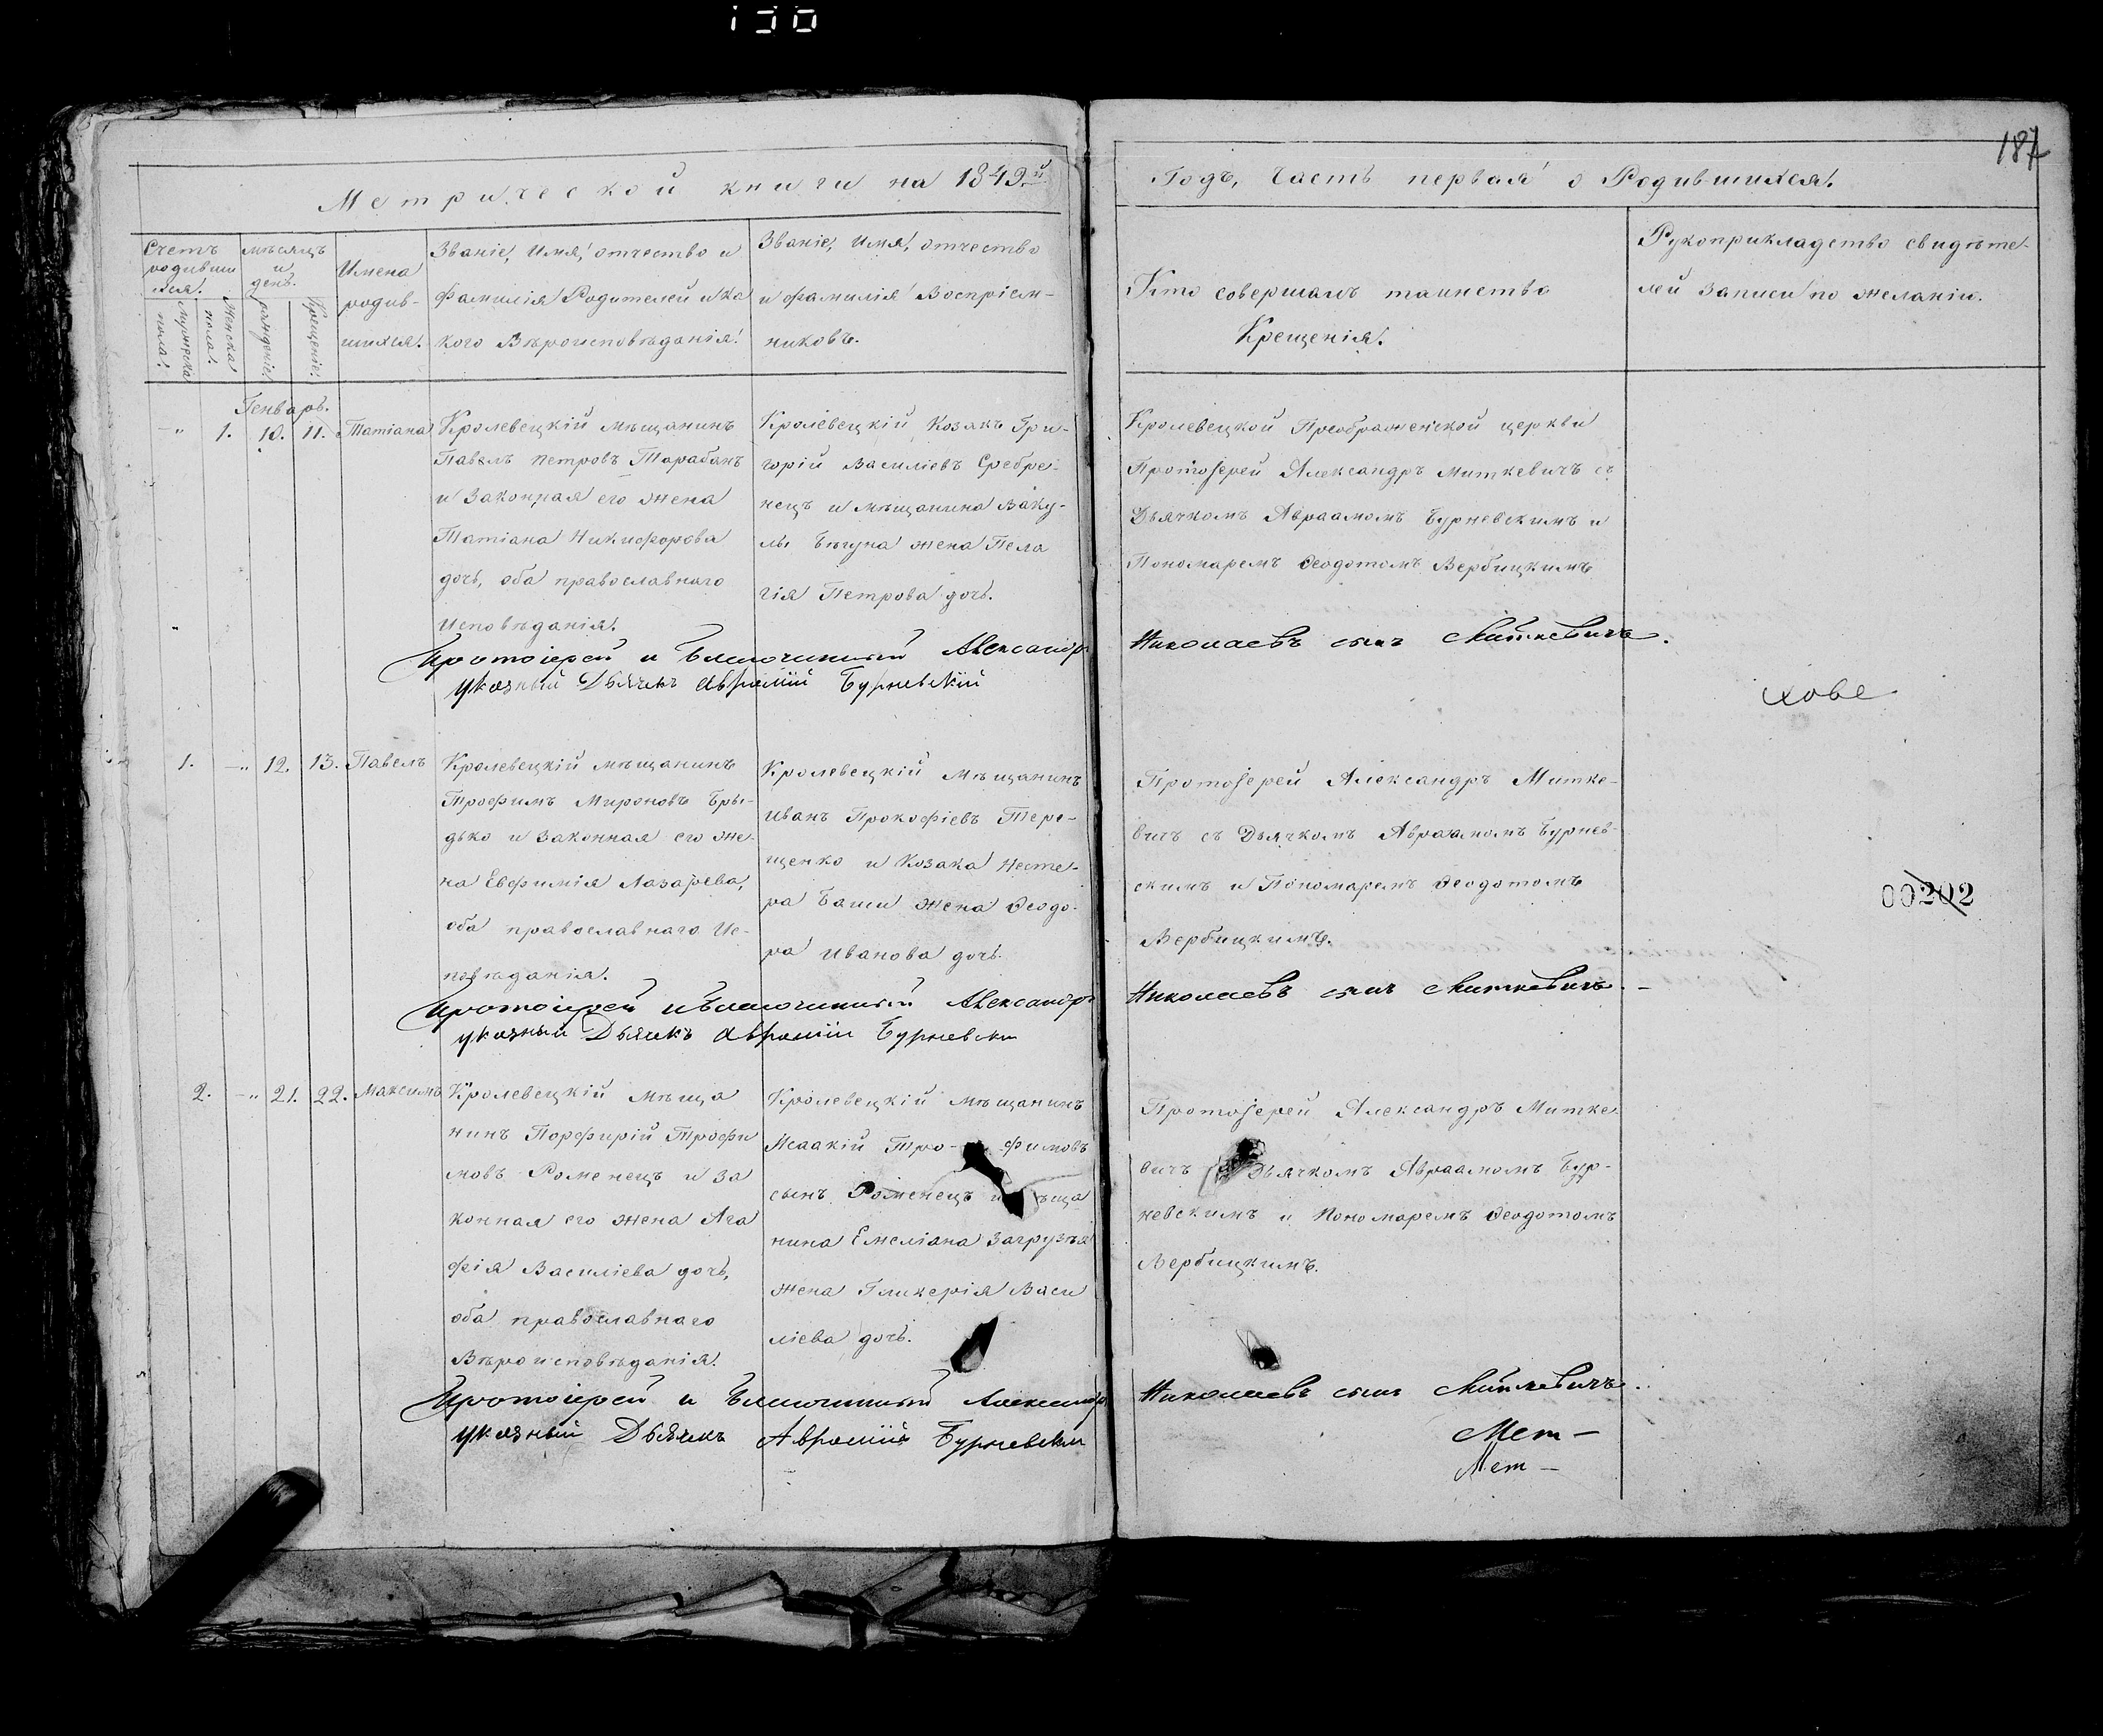 187
Метрической книги на 1849.й
Годъ, Часть первая о Родившихся.
Счетъ
родивши
хся.
Мужеска
пола.
Женска
пола.
мѣсяцъ
и
день.
рожденіе
Крещеніе.
Имена
родив-
шихся.
Званіе, Имя, отчество и
Фамилія Родителей и ка
кого Вѣроисповѣданія.
Званіе, Имя, отчество
и фамилія Воспріем-
никовъ.
Кто совершалъ таинство
Крещенія.
Рукоприкладство свидѣте-
лей Записи по желанію.
Генварь.
-„ 1. 10. 11. Татіана
Кролевецкій мѣщанинъ
Павелъ Петровъ Тарабанъ
и Законная его жена
Татіана Никифорова
дочь, оба православнаго
Исповѣданія.
Кролевецкій Козакъ Гри-
горій Василіевъ Сребре-
нецъ и мѣщанина Ваку-
лы Бѣгуна жена Пела
гія Петрова дочь.
Кролевецкой Преображенской церкви
Протоіерей Александръ Миткевичъ съ
Дьячкомъ Авраамомъ Бурневскимъ и
Пономаремъ Ѳеодотомъ Вербицкимъ
Протоіерей и Благочинный Александръ Николаевъ сынъ Миткевичъ.
указный Дьячекъ Аврамій Бурневскій
хове
1. -„ 12. 13. Павелъ
Кролевецкій мѣщанинъ
Трофимъ Мироновъ Бры-
дько и Законная его же-
на Евфимія Лазарева,
оба православнаго Ис-
повѣданія.
Кролевецкій Мѣщанинъ
Иванъ Прокофіевъ Тере-
щенко и Козака Несте-
ра Баши жена Ѳеодо-
ра Иванова дочь.
Протоіерей Александръ Митке-
вичъ съ Дьячкомъ Авраамомъ Бурнев-
скимъ и Пономаремъ Ѳеодотомъ
Вербицкимъ.
00202
Протоіерей и Благочинный Александръ Николаевъ сынъ Миткевичъ. -
указный Дьячекъ Аврамій Бурневски
2. -„ 21. 22. Максимъ
Кролевецкій Мѣща
нинъ Порфирій Трофи
мовъ Роменецъ и За
конная его жена Ага
фія Василіева дочь,
оба православнаго
Вѣроисповѣданія.
Кролевецкій мѣщанинъ
Исаакій Тро- фимовъ
сынъ Роменецъ и ѣща
нина Емеліана Загрузѣя
жена Гликерія Васи
ліева дочь.
Протоіерей Александръ Митке-
вичъ Дьячкомъ Авраамомъ Бур-
невскимъ и Пономаремъ Ѳеодотомъ
Вербицкимъ.
Протоіерей и Благочинный Александръ Николаевъ сынъ Миткевичъ.
указный Дьячекъ Аврамій Бурневски
Мет -
Мет -